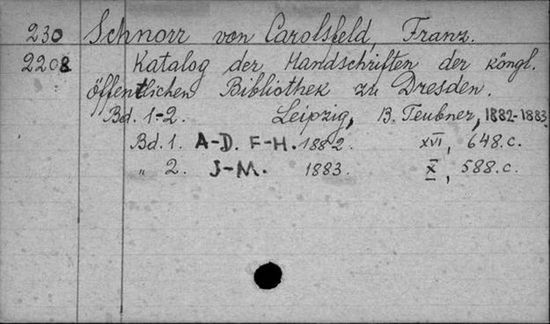 230 Schnorr von Carolsfeld, Franz.
2208 Katalog der Handschriften der köngl.
öffentlichen Bibliothek zu Dresden.
Bd. 1-2. Leipzig, B. Teubner, 1882-1883
Bd. 1. A-D. F-H. 1882. XVI, 648.c.
„ 2. J-M. 1883. X, 588.c.